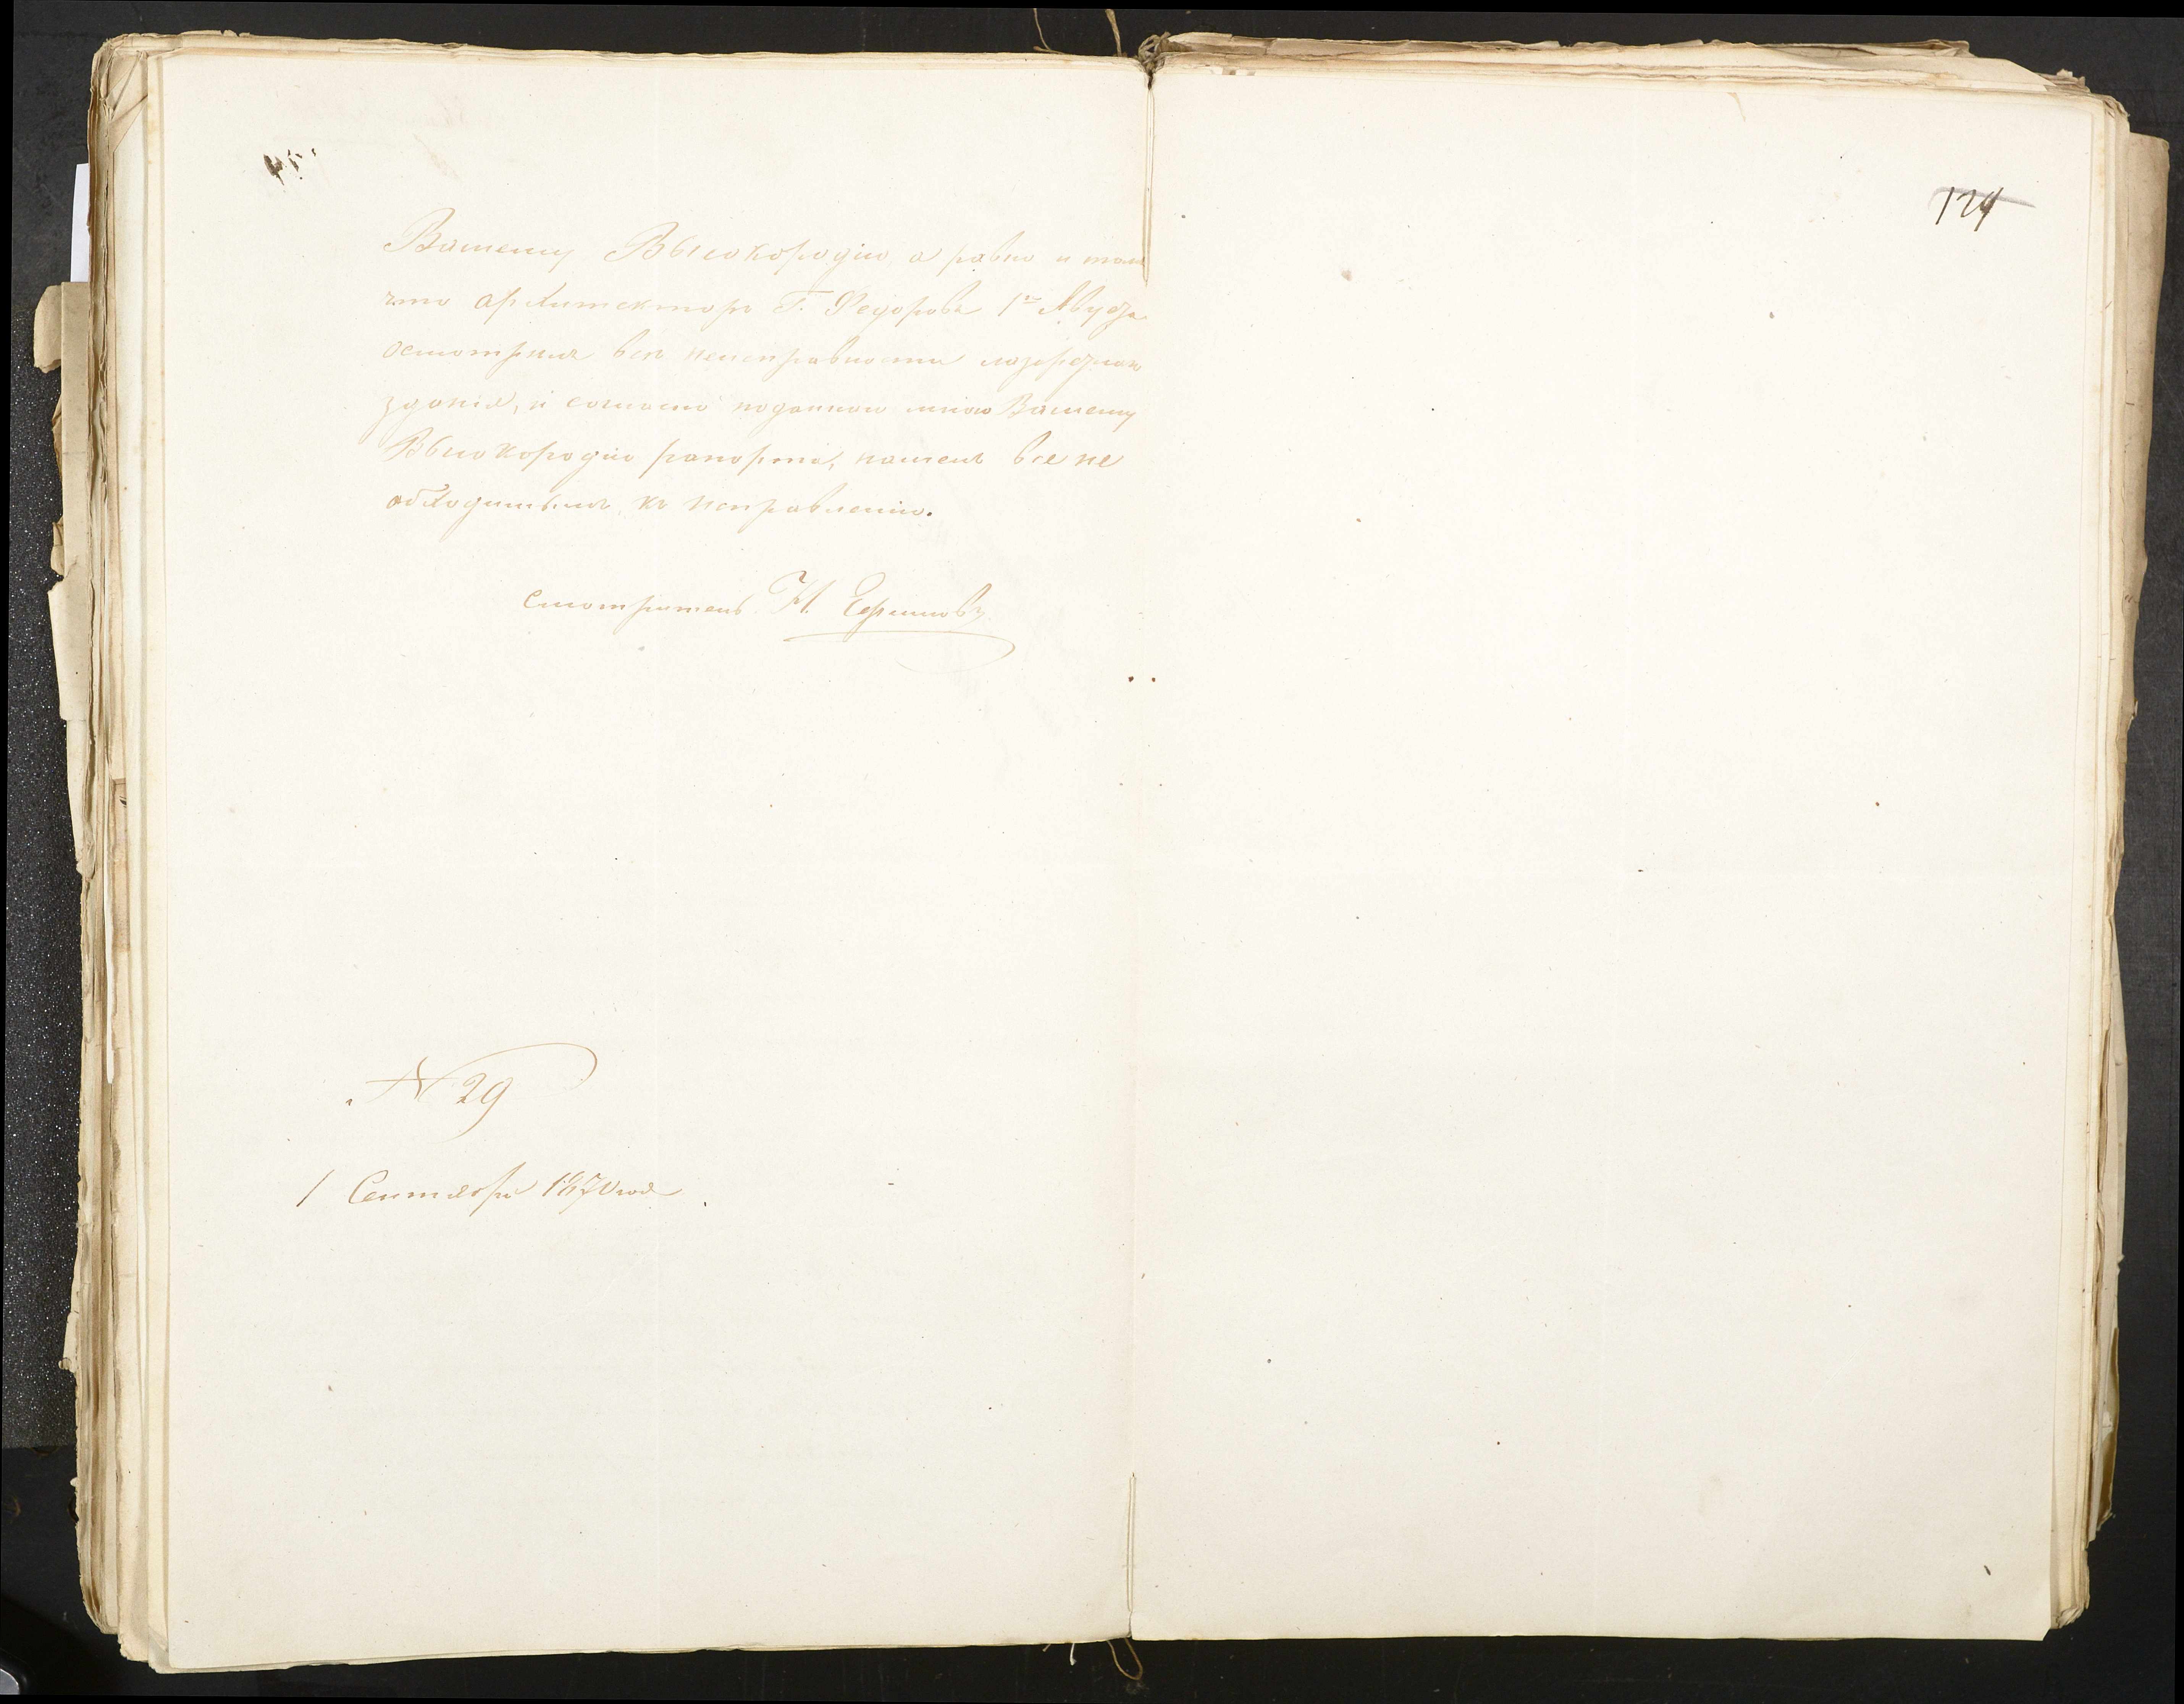 Вашему Высокородію, а равно и то
что Архитекторъ Г. Федоровъ 1го Августа
осмотрѣлъ всѣ неисправности
зданія, и согласно поданнаго мною Вашему
Высокородію рапорта, нашелъ все не
обходимымъ къ исправленію.
Смотритель Н. Ефимовъ
№ 29
1 Сентября 1870 года
124